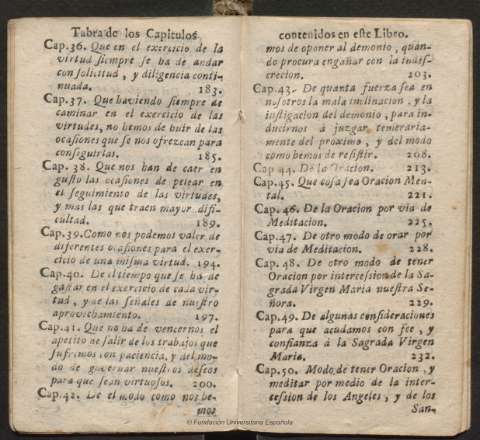 Tabra de los Capitulos
Cap.36. Que en el exercicio de la
virtud siempre se ha de andar
con solicitud, y diligencia conti-
nuada. 183.
Cap.37. Que haviendo siempre de
caminar en el exercicio de las
virtudes, no hemos de huir de las
ocasiones que se nos ofrezcan para
conseguirlas. 185.
Cap. 38. Que nos han de caer en
gusto las ocasiones de pelear en
el seguimiento de las virtudes,
y mas las que traen mayor difi-
cultad. 189.
Cap.39. Como nos podemos valer de
diferentes ocasiones para el exer-
cicio de una misma virtud. 194.
Cap.40. De el tiempo que se ha de
gastar en el exercicio de cada vir-
tud, y de las señales de nuestro
aprovechamiento. 197.
Cap.41. Que no ha de vencernos el
apetito de salir de los trabajos que
sufrimos con paciencia, y del mo-
do de governar nuestros deseos
para que sean virtuosos. 200.
Cap.42. De el modo como nos he-
mos
contenidos en este Libro.
mos de oponer al demonio, quan-
do procura engañar con la indis-
crecion. 203.
Cap.43. De quanta fuerza sea en
nosotros la mala inclinacion, y la
instigacion del demonio, para in-
ducirnos à juzgar temeraria-
mente del proximo, y del modo
como hemos de resistir. 208.
Cap 44. De la Oracion. 213.
Cap.45. Que cosa sea Oracion Men-
tal. 221.
Cap.46. De la Oracion por via de
Meditacion. 225.
Cap.47. De otro modo de orar por
via de Meditacion. 228.
Cap.48. De otro modo de tener
Oracion por intercession de la Sa-
grada Virgen Maria nuestra Se-
ñora. 229.
Cap.49. De algunas consideraciones
para que acudamos con fee, y
confianza à la Sagrada Virgen
Maria. 232.
Cap.50. Modo de tener Oracion, y
meditar por medio de la inter-
cession de los Angeles, y de los
San-
© Fundación Universitaria Española